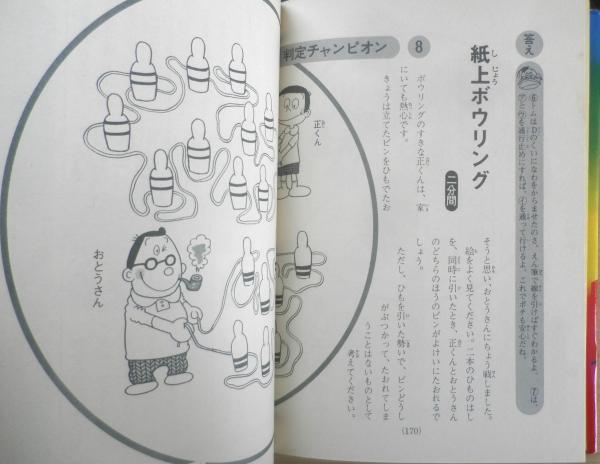 答え
⑥トムはDのくいになわをからませたのさ。えん筆で線を引けばすぐわかるよ。⑦は、
⑦と⑰を通行止めにすれば、⑦を通って行けるよ。これでポチも安心だね。
紙上ボウリング
しじょう
二分間
8
判定チャンピオン
ボウリングのすきな正くんは、家
にいても熱心です。
きょうは立てたピンをひもでたお
そうと思い、おとうさんにちょう戦しました。
絵をよく見てください。二本のひものはし
を、同時に引いたとき、正くんとおとうさん
のどちらのほうのピンがよけいにたおれるで
しょう。
ただし、ひもを引いた勢いで、ピンどうし
がぶつかって、たおれてしま
うことはないものとして
考えてください。
正くん
おとうさん
(170)